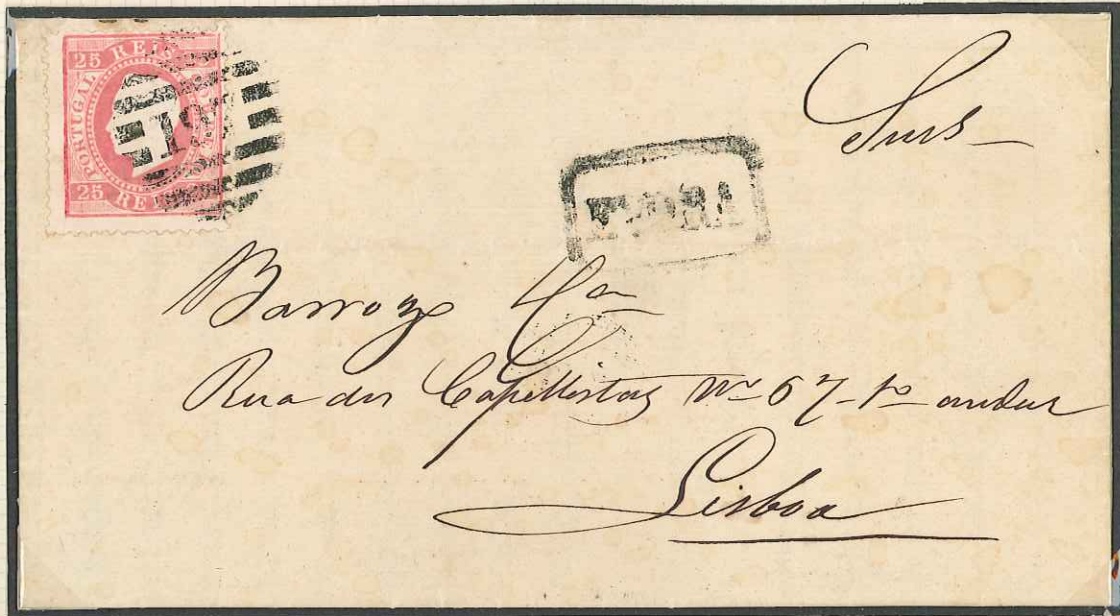 25 REIS
PORTUGAL
25 RE
Snrs
EVORA
Barrozo Ca
Rua dos Capellistas No 67-1o andar
Lisboa